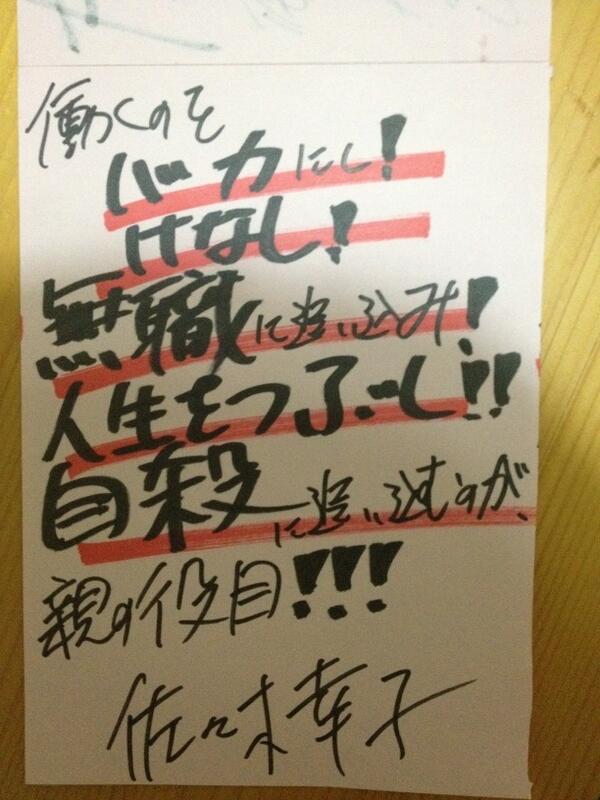 働くのを
バカにし!
けなし!
無職に追い込み!
人生をつぶし!!
自殺に追い込むのが、
親の役目!!!
佐々木幸子